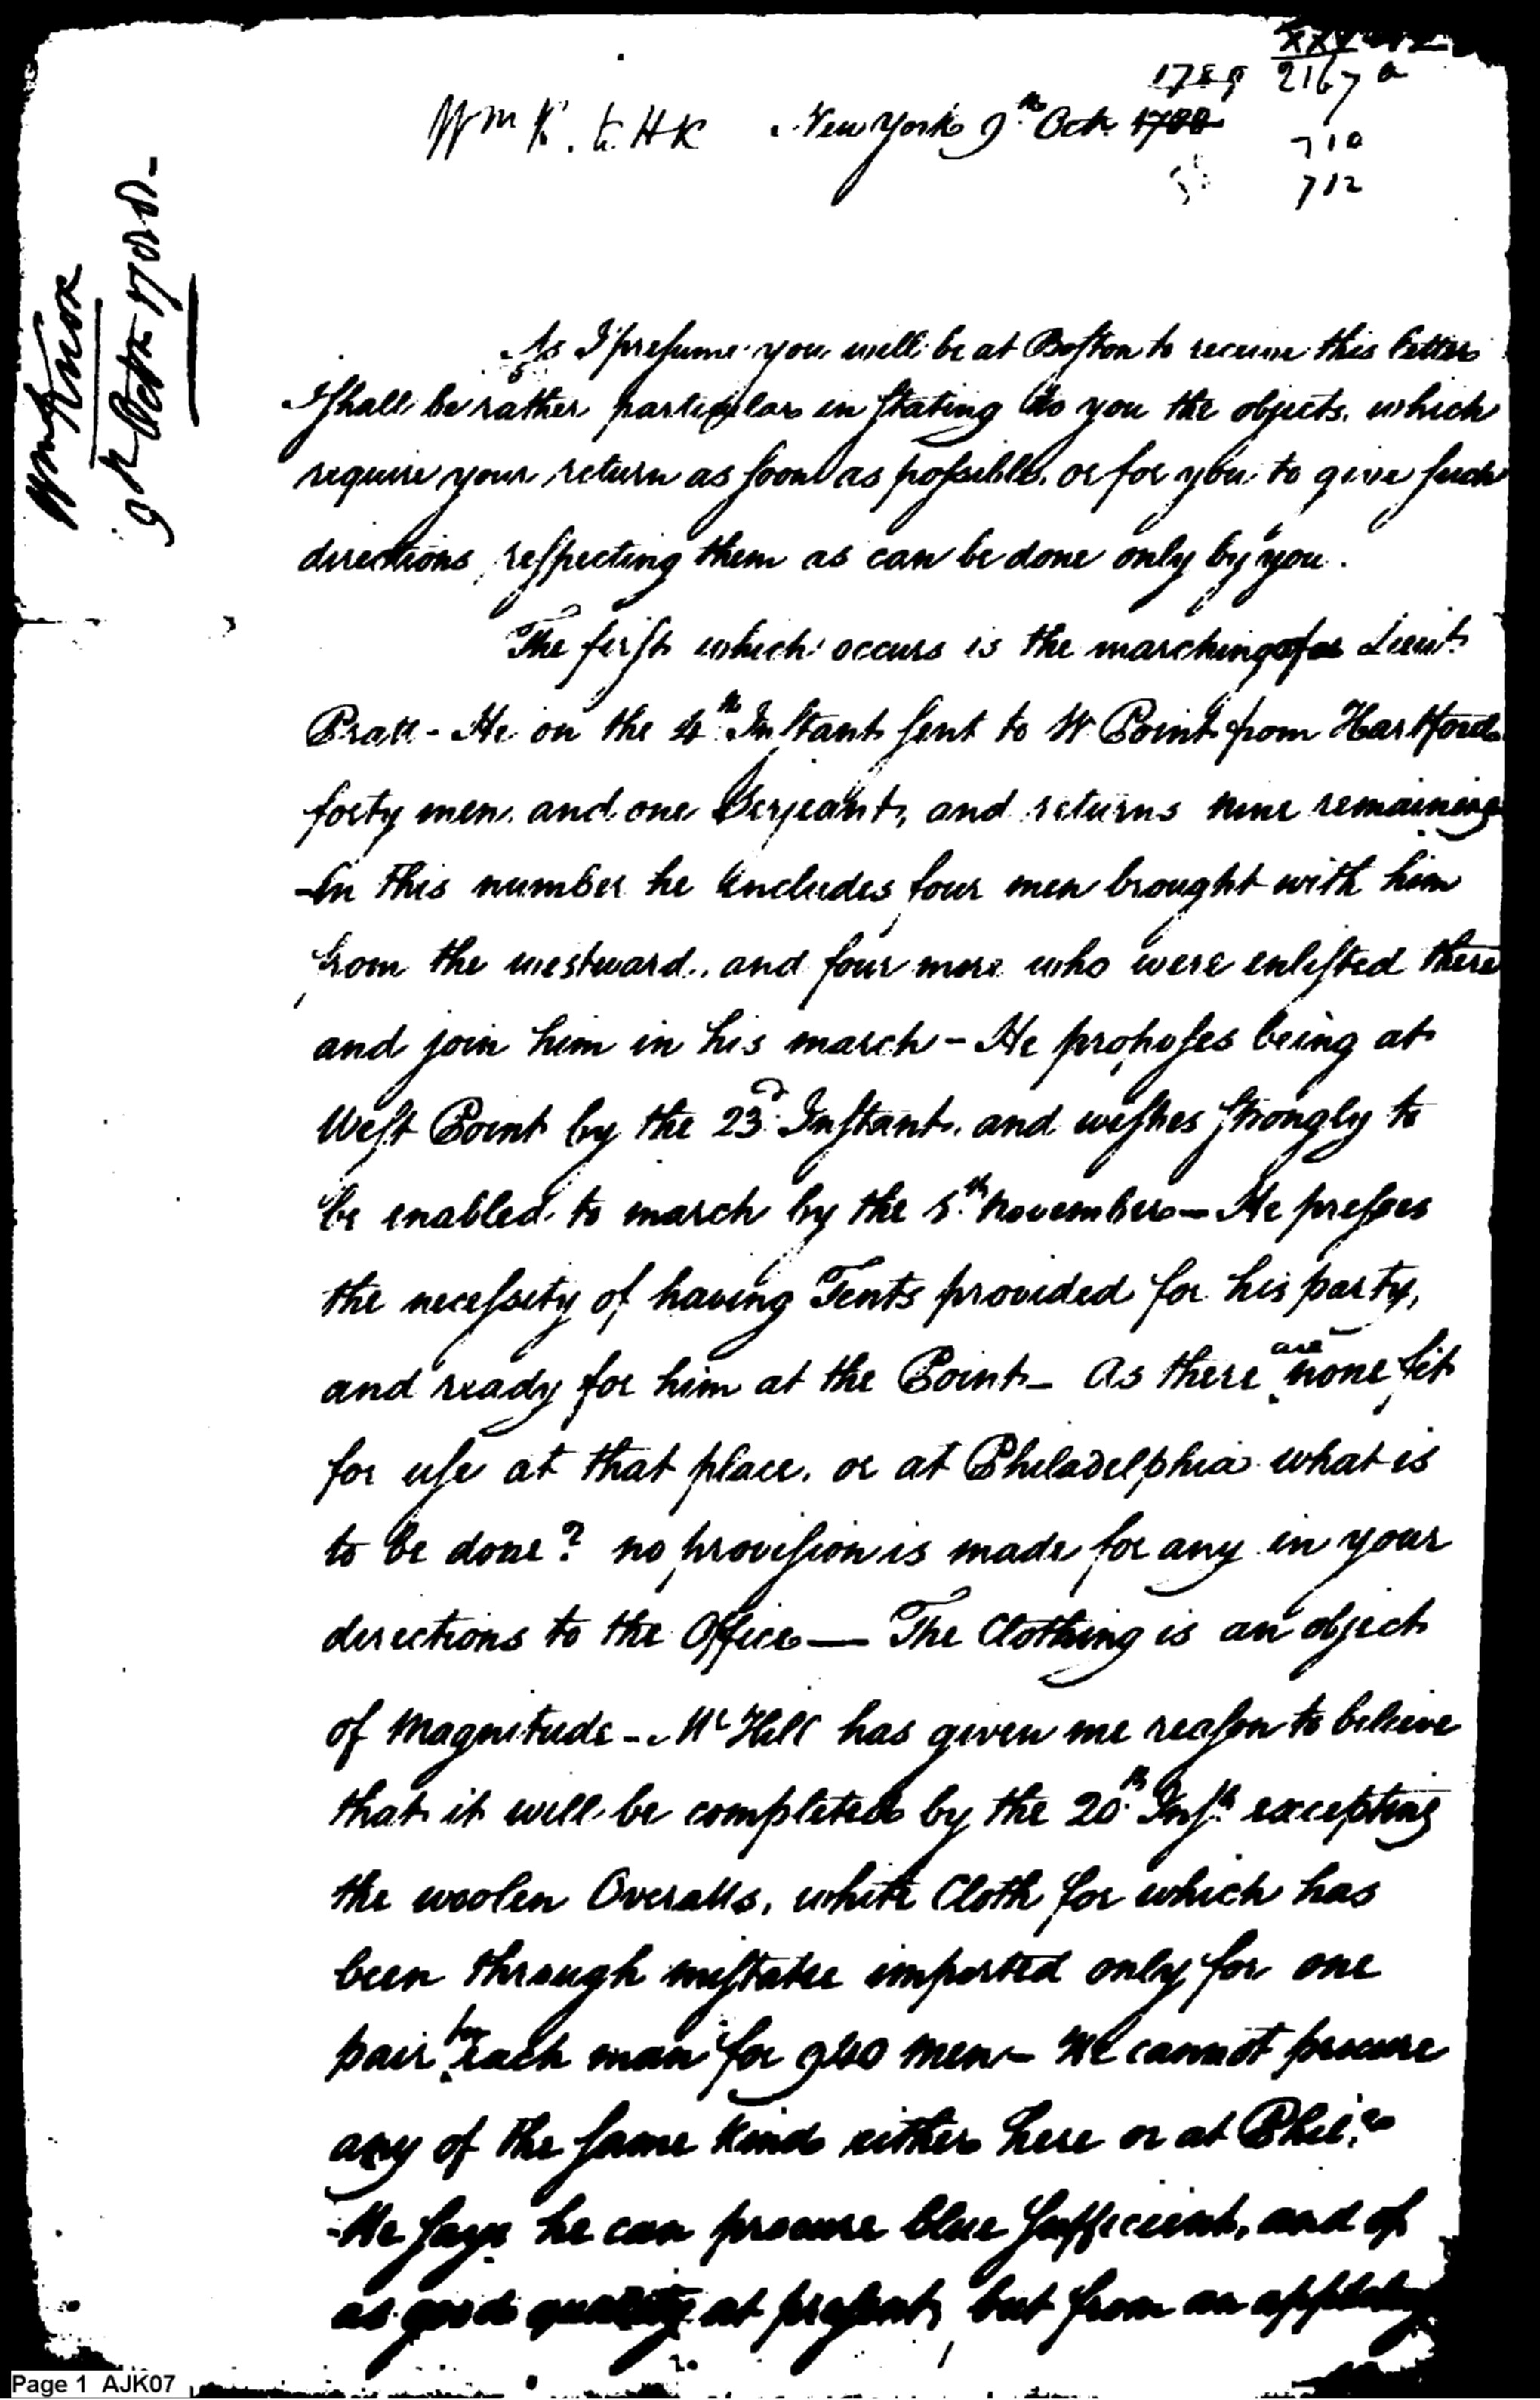 1789 2167 a
Wm K. to HK New York 9th Oct. 1788
710
712
Wm Knox
9th Octr 1788
As I presume you will be at Boston to receive this letter
I shall be rather particular in stating to you the objects, which
require your return as soon as possible, or for you to give such
directions respecting them as can be done only by you.
The first which occurs is the marching of Lieut.
Pratt - He on the 4th Instant sent to W Point from Hartford
forty men and one Serjeant, and returns nine remaining
In this number he includes four men brought with him
from the westward, and four more who were enlisted there
and join him in his march - He proposes being at
West Point by the 23d Instant, and wishes strongly to
be enabled to march by the 5th November - He presses
the necessity of having Tents provided for his party,
and ready for him at the Point - As there are none fit
for use at that place, or at Philadelphia what is
to be done? no provision is made for any in your
directions to the Office — The Clothing is an object
of Magnitude - Mr Hill has given me reason to believe
that it will be completed by the 20th Inst excepting
the woolen Overalls, white Cloth for which has
been through mistake imported only for one
pair for each man for 940 men - We cannot procure
any of the same kind either here or at Phila
He says he can procure blue sufficient, and of
as good quality at present, but from an
Page 1 AJK07